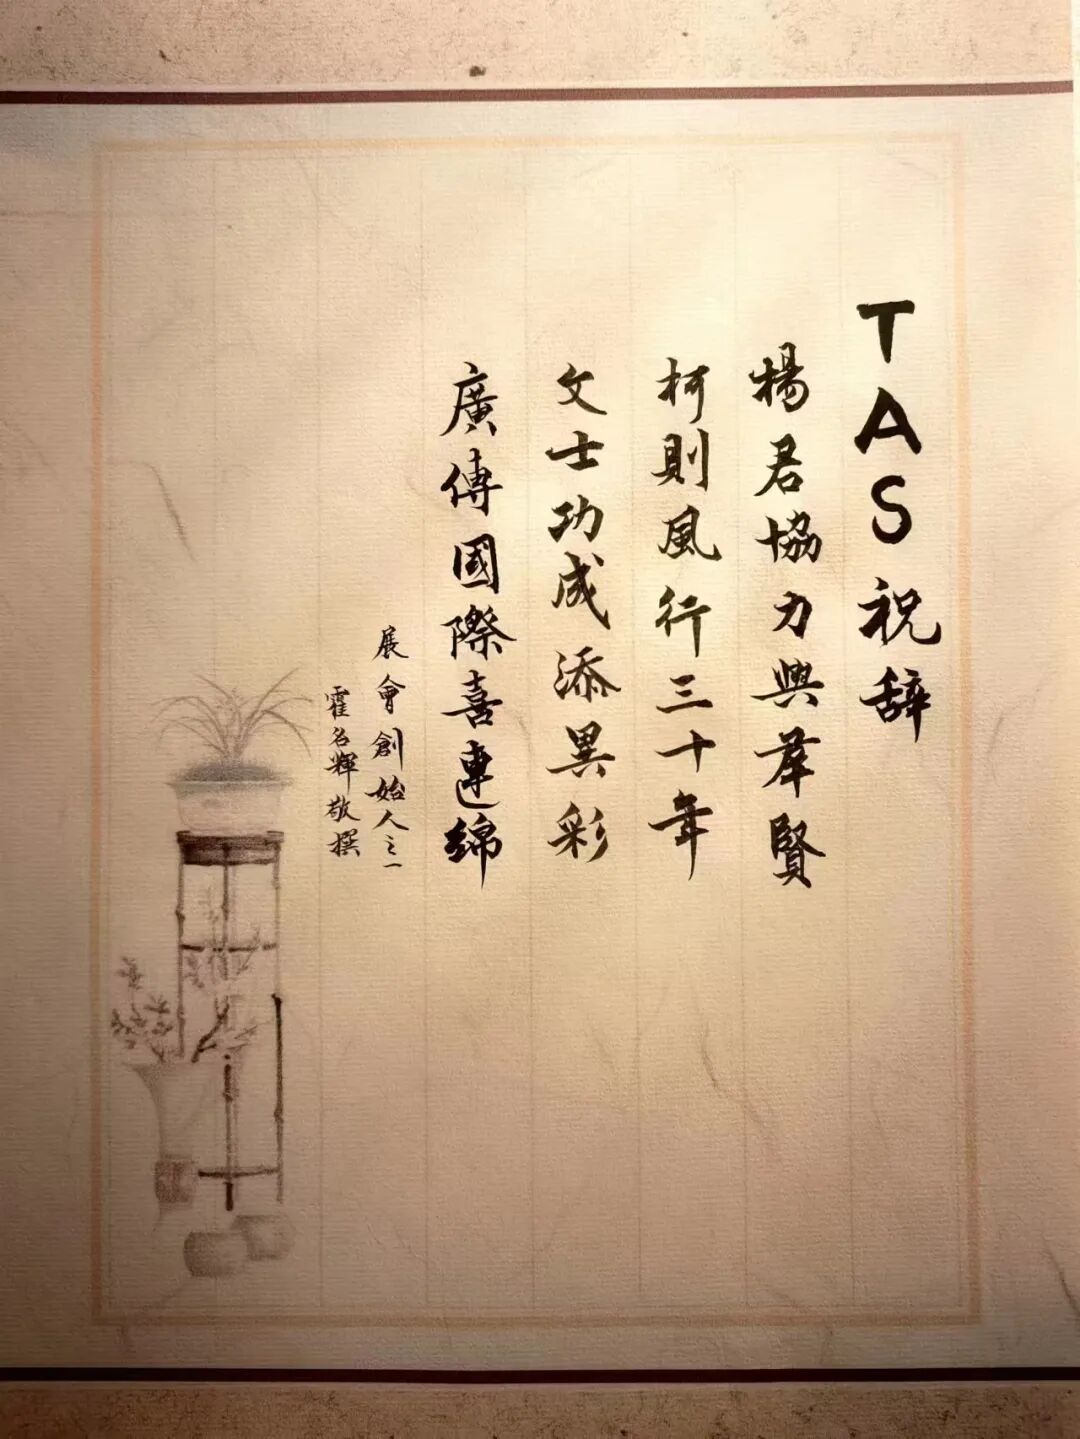 TAS祝辞
楊君協力興羣賢
柯則風行三十年
文士功成添異彩
廣傳國際喜連綿
展會創始人之一
霍名輝敬撰